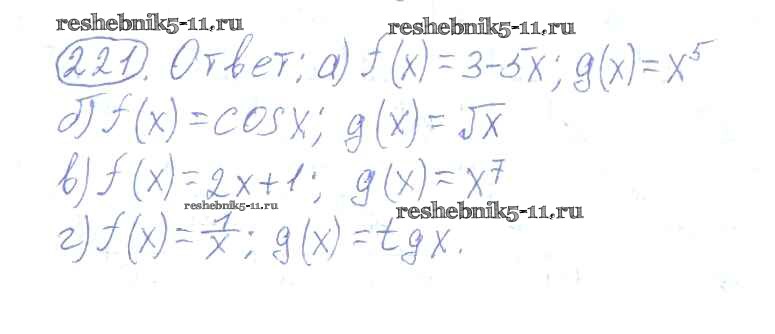 reshebnik5-11.ru reshebnik5-11.ru
221. Ответ; а) f(x)=3-5x; g(x)=x⁵
б) f(x)=cosx; g(x)=√x
в) f(x)=2x+1; g(x)=x⁷
reshebnik5-11.ru reshebnik5-11.ru
г) f(x)=1/x; g(x)=tgx.